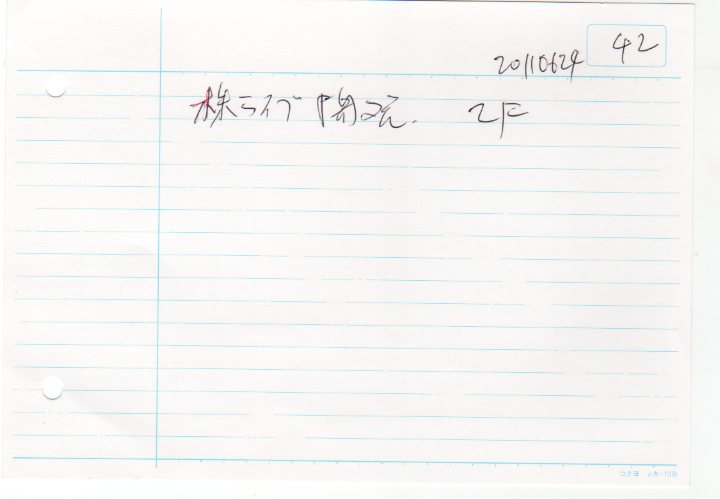 42
20110624
株ライブ
2F
コクヨ シカ-13B